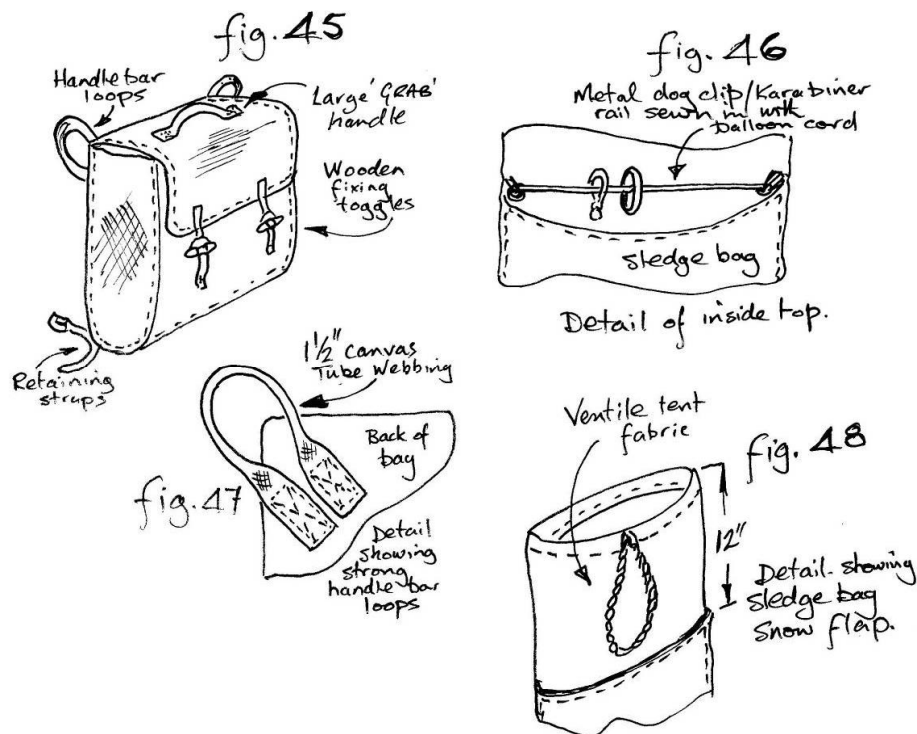 fig. 45
Handlebar
loops
Large 'GRAB'
handle
Wooden
fixing
toggles
Retaining
straps
fig. 46
Metal dog clip/Karabiner
rail sewn in with
balloon cord
sledge bag
Detail of inside top.
1½" canvas
Tube Webbing
Back of
bag
fig. 47
Detail
showing
strong
handle bar
loops
Ventile tent
fabric
fig. 48
12"
Detail showing
sledge bag
snow flap.